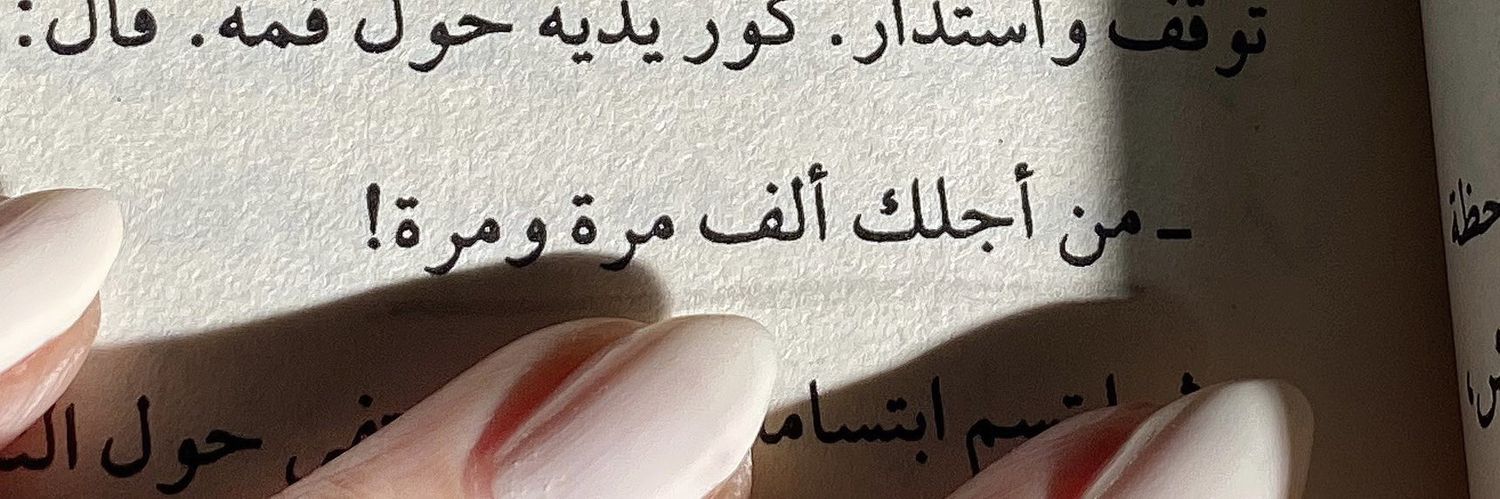 توقف واستدار. كور يديه حول فمه. قال:
ـ من أجلك ألف مرة ومرة!
ابتسم ابتسامة حول
حظة